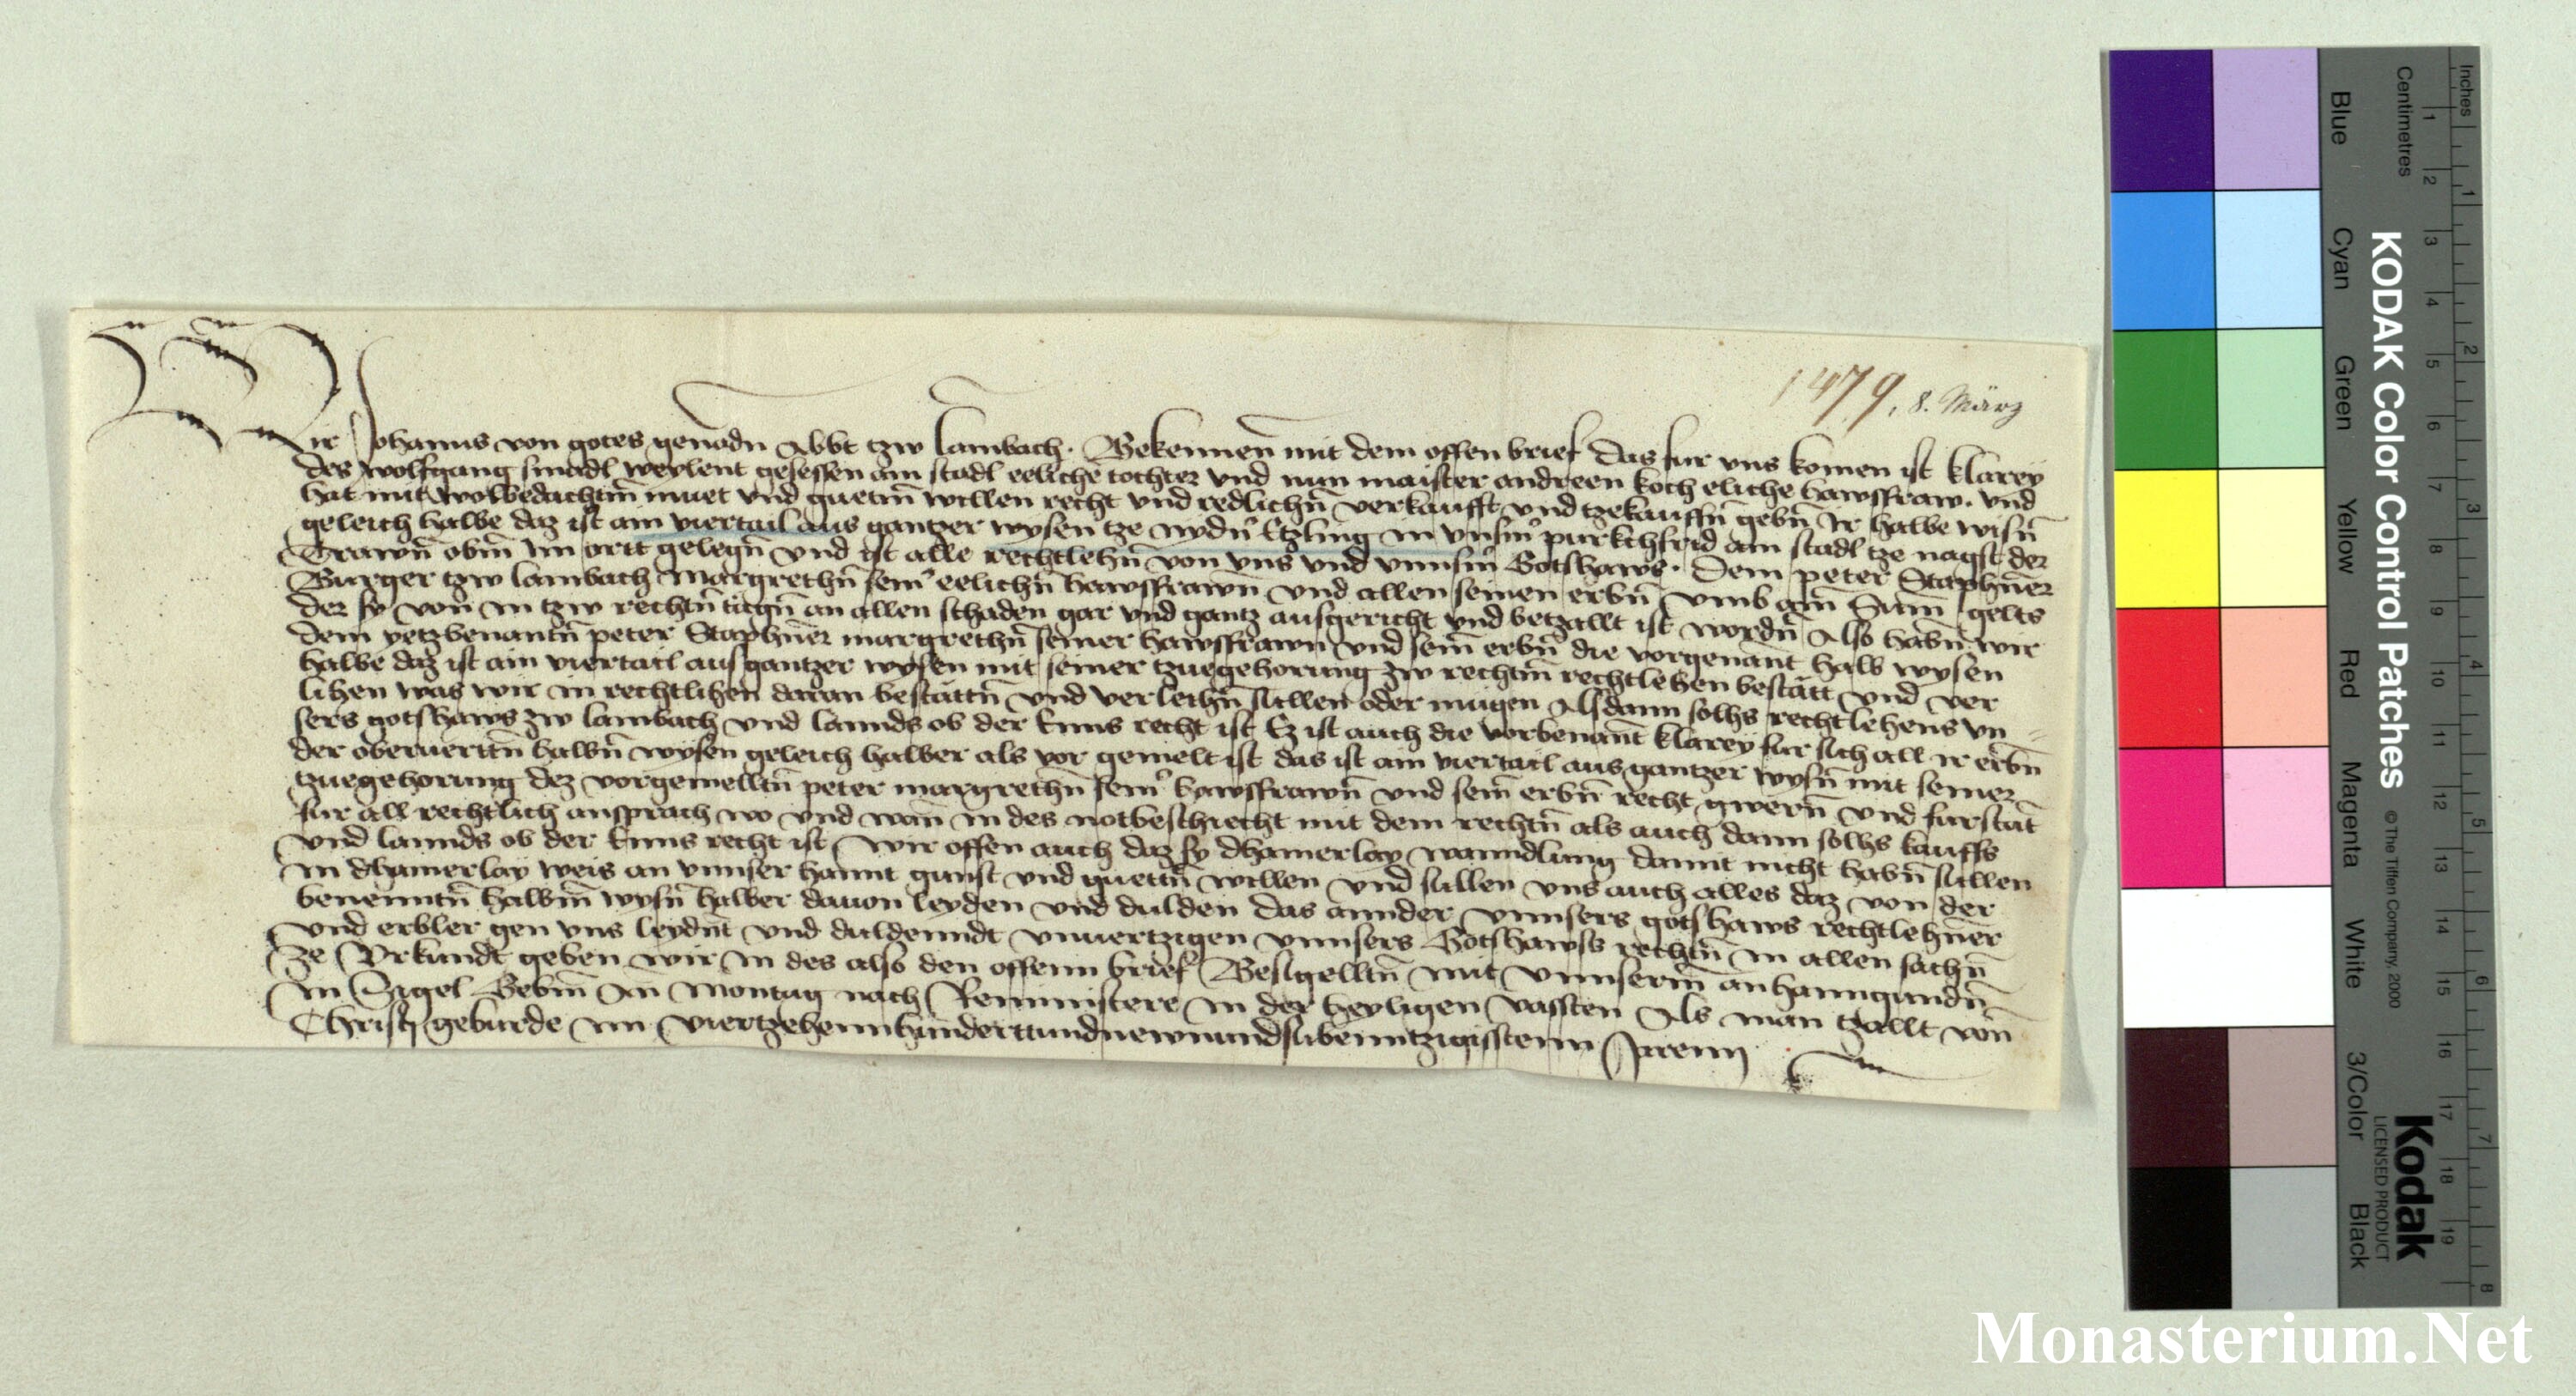 1479, 8. März
Wir Johanns von gotes genadn Abbt tzw lambach. Bekennen mit dem offen brief das fur vns komen ist klarey
des wolfgang smadl weylent gesessen am stadl eeliche tochter vnd nun maister andreen koch eliche hawsfraw. vnd
hat mit wolbedachtm̄ muet vnd guetm̄ willen recht vnd redlichn̄ verkaufft vnd tzekauffn̄ gebn̄ Ir halbe wisn̄
geleich halbe daz ist ain viertail aus gantzer wysen tze nydn̄ Etzling in vnsm̄ purkchfrid am stadl tze nagst der
Trawn̄ obm̄ Im ortt gelegn̄ vnd ist alle rechtlehn̄ von vns vnd vnnsm̄ Gotshaws. Dem peter Staphn̄er
Burger tzw lambach margrethn̄ sein̄ eelichn̄ hawsfrawn̄ vnd allen seinen erbn̄ vmb ain̄ Sum gelts
der sy von in tzw rechtn̄ tagn̄ an allen schaden gar vnd gantz ausgericht vnd betzallt ist wordn̄ Also habn̄ wir
dem yetzbenantn̄ peter Staphn̄er margrethn̄ seiner hawsfrawn vnd sein̄ erbn̄ die vorgenan̄t halb wysen
halbe daz ist ain viertail aus gantzer wysen mit seiner tzuegehorung zw rechtm̄ rechtlehen bestätt vnd ver
lihen was wir in rechtlihen daran bestättn̄ vnd verleihn̄ sullen oder mugen Alsdann solhs rechtlehens vn
sers gotshaws zw lambach vnd lannds ob der Enns recht ist Ez ist auch die vorbenan̄t klarey fur sich all ir erbn̄
der oberuertn̄ halbn̄ wysen geleich halber als vor gemelt ist das ist ain viertail aus gantzer wysn̄ mit seiner
tzuegehorung dez vorgemelltn̄ peter margrethn̄ sein̄ hawsfrawn̄ vnd sein̄ erbn̄ recht gwern̄ vnd furstan̄t
fur all rechtlich ansprach wo vnd wan̄ in des notbeschiecht mit dem rechtn̄ als auch dann solhs kauffs
vnd lannds ob der Enns recht ist wir offen auch daz sy dhainerlay wanndlung damit nicht habn̄ sullen
in dhainerlay weis an vnnser hannt gunst vnd guettn̄ willen vnd sullen vns auch alles daz von der
benenntn̄ halbm̄ wysn̄ halber dauon leyden vnd dulden das annder vnnsers gotshaws rechtlehn̄er
vnd erbler gen vns leydn̄t vnd duldenndt vnuertzigen vnnsers Gotshawss rechtn̄ in allen sachn̄
Ze Vrkundt geben wir in des also den offenn brief Besigelltn̄ mit vnnserm̄ anhanngundn̄
in Sigel Gebm̄ An Montag nach Reministere in der heyligen vassten Als man tzallt von̄
Christi geburde im viertzehennhunderttundnewnundsibenntzigisstenn Jarenn
Blue
Cyan
Green
Yellow
Red
Magenta
White
3/Color
Black
KODAK Color Control Patches
© The Tiffen Company, 2000
Kodak
LICENSED PRODUCT
Centimetres
1 2 3 4 5 6 7 8 9 10 11 12 13 14 15 16 17 18 19
Inches
1 2 3 4 5 6 7 8
Monasterium.Net